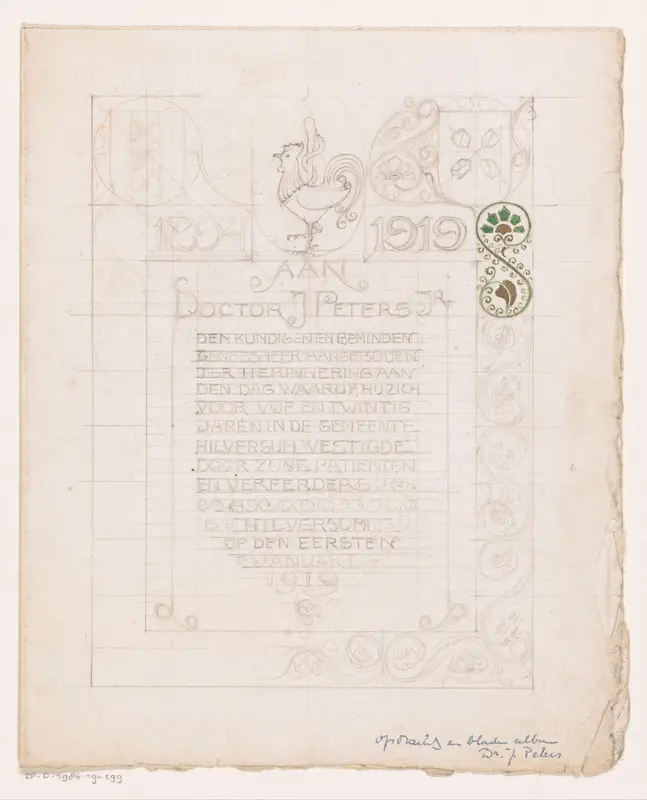 1894 1919
AAN
DOCTOR J PETERS JR
DEN KUNDIGEN EN BEMINDEN
GENEESHEER AANGEBODEN
TER HERINNERING AAN
DEN DAG WAAROP HIJ ZICH
VOOR VIJF EN TWINTIG
JAREN IN DE GEMEENTE
HILVERSUM VESTIGDE
DOOR ZIJNE PATIENTEN
EN VEREERDERS
HILVERSUM
OP DEN EERSTEN
JANUARI
1919
opdracht en bladen album
Dr. J. Peters
RP-D-1986-19-599